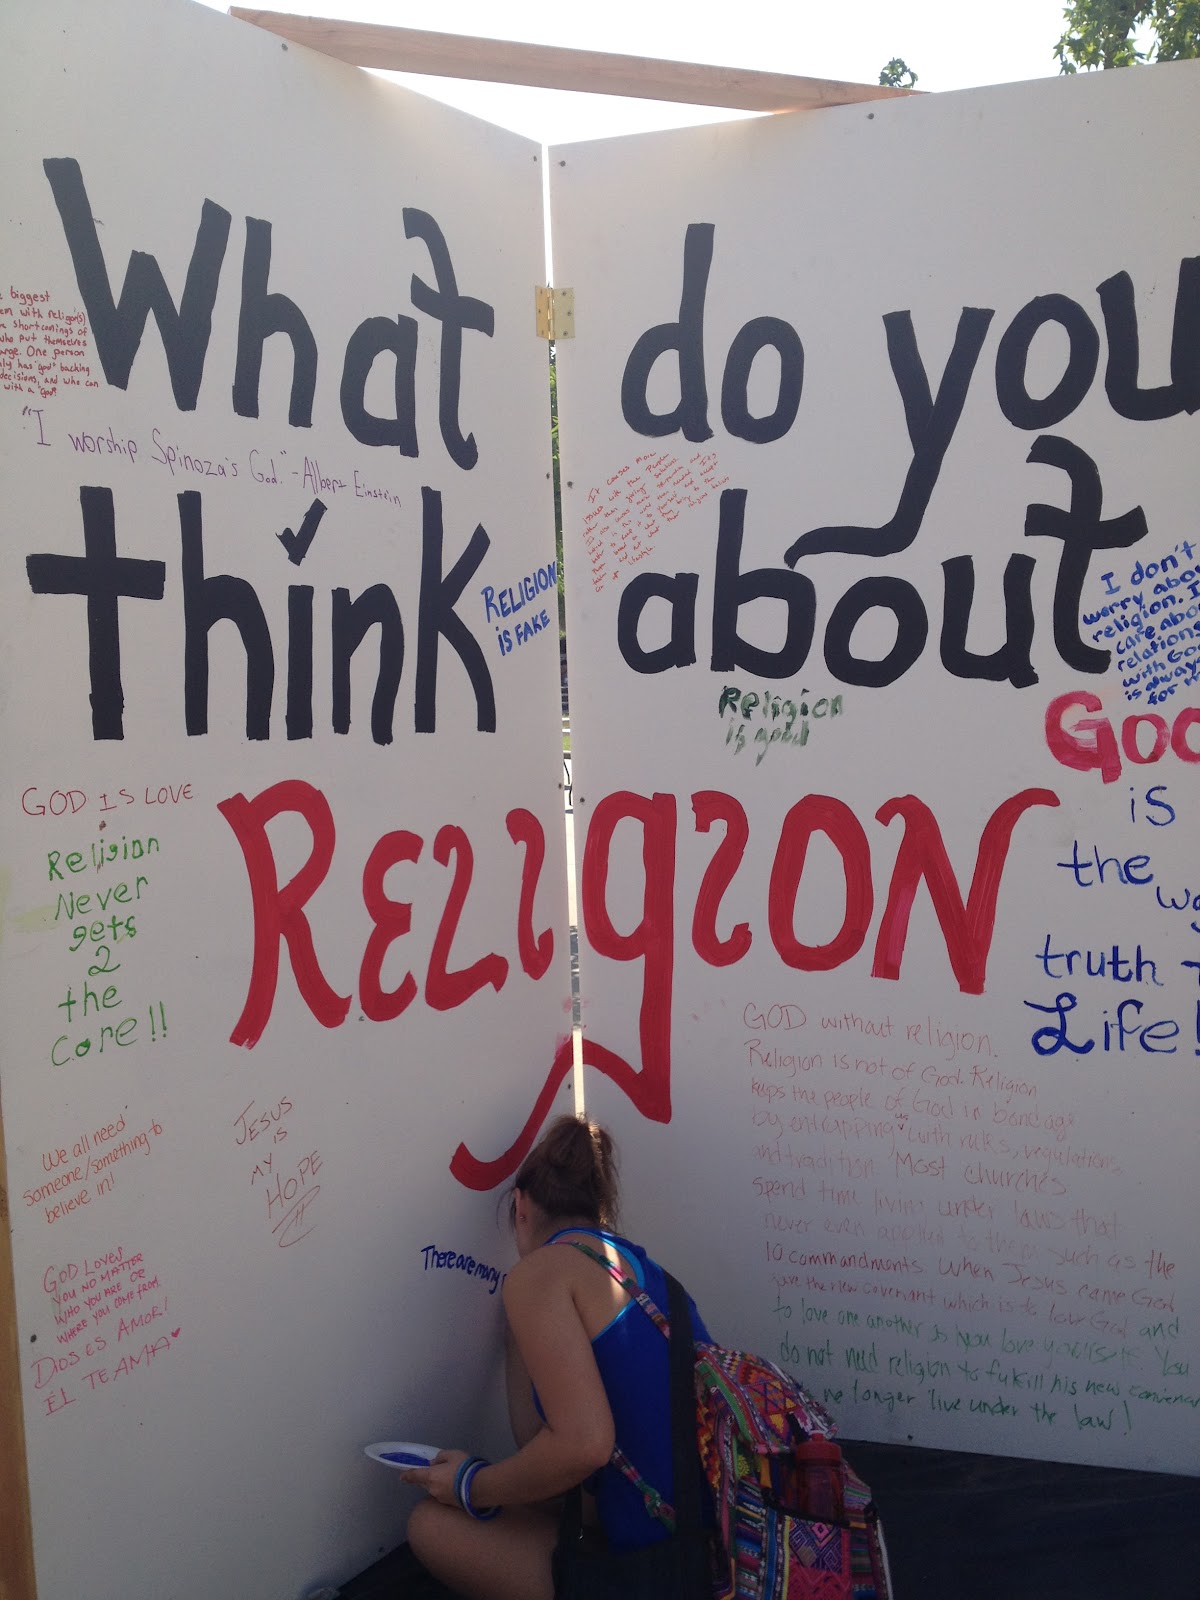 What do you
think about
RELIGION
biggest
em with religion(s)
shortcomings of
who put themselves
arge. One person
ly has "god" backing
decisions, and who can
with a "god?
"I worship Spinoza's God." - Albert Einstein
RELIGION
is FAKE
It causes more
issues with the People
rather than giving solutions
Religion
is good
I don't
worry abou
religion. I
care abou
relations
with God
is always
for m
GOD IS LOVE
Religion
Never
gets
2
the
Core!!
GOD
is
the wa
truth +
Life!
We all need
someone/something to
believe in!
JESUS
is
MY
HOPE
GOD LOVES
YOU NO MATTER
WHO YOU ARE OR
WHERE YOU COME FROM
DIOS ES AMOR!
ÉL TE AMA
There are many
GOD without religion.
Religion is not of God. Religion
keeps the people of God in bondage
by entrapping us with rules, regulations,
and tradition. Most churches
spend time living under laws that
never even applied to them such as the
10 commandments. When Jesus came God
gave the new covenant which is to love God and
to love one another as you love yourself. You
do not need religion to fulfill his new convenan
no longer live under the law!